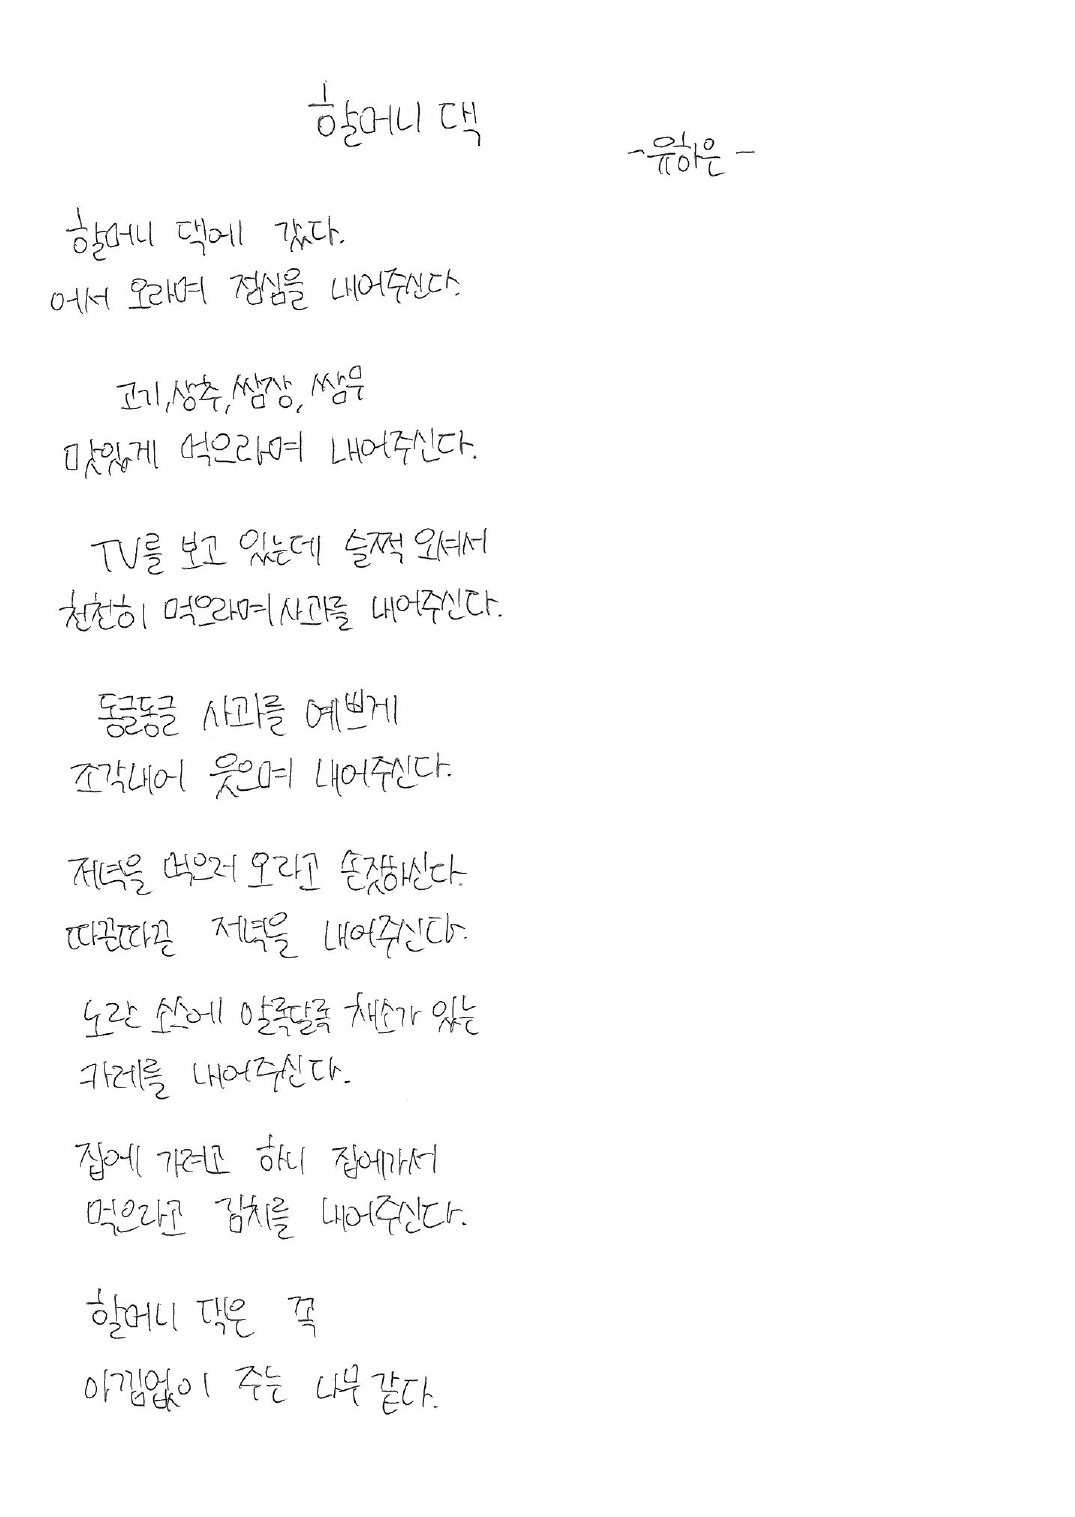 할머니 댁
-유하은-
할머니 댁에 갔다.
어서 오라며 점심을 내어주신다.
고기,상추,쌈장,쌈무
맛있게 먹으라며 내어주신다.
TV를 보고 있는데 슬쩍 오셔서
천천히 먹으라며 사과를 내어주신다.
동글동글 사과를 예쁘게
조각내어 웃으며 내어주신다.
저녁을 먹으러 오라고 손짓하신다.
따끈따끈 저녁을 내어주신다.
노란 소스에 알록달록 채소가 있는
카레를 내어주신다.
집에 가려고 하니 집에가서
먹으라고 김치를 내어주신다.
할머니 댁은 꼭
아낌없이 주는 나무 같다.